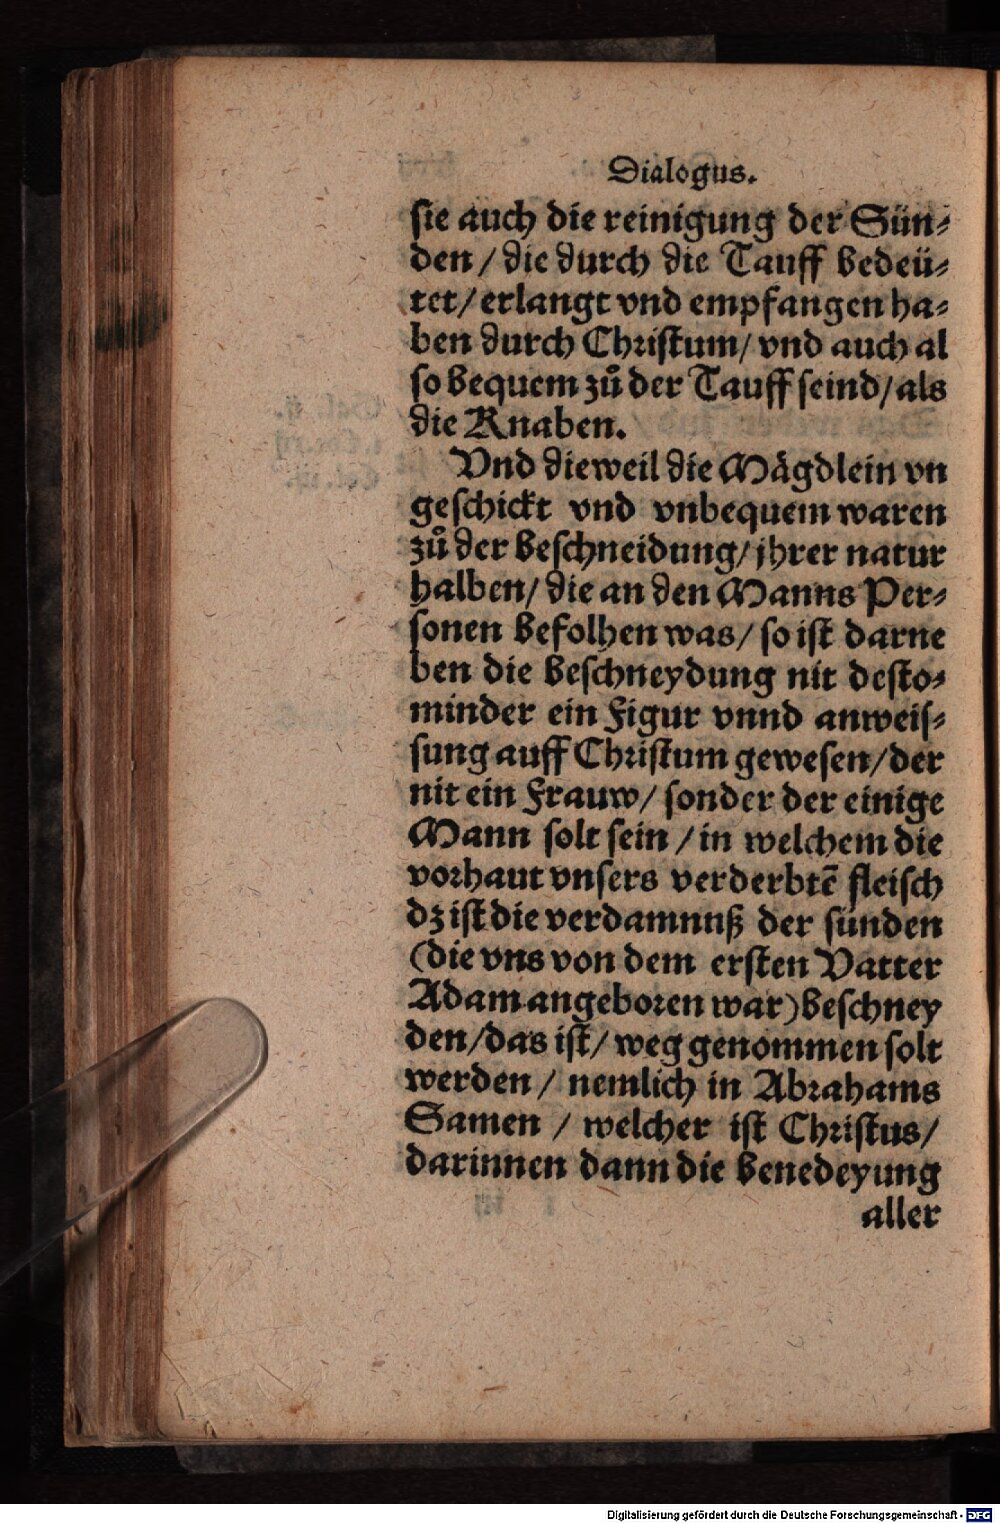 Dialogus.
sie auch die reinigung der Sün⸗
den / die durch die Tauff bedeü⸗
tet / erlangt vnd empfangen ha⸗
ben durch Christum / vnd auch al
so bequem zů der Tauff seind / als
die Knaben.
Vnd dieweil die Mägdlein vn
geschickt vnd vnbequem waren
zů der beschneidung / jhrer natur
halben / die an den Manns Per⸗
sonen befolhen was / so ist darne
ben die beschneydung nit desto⸗
minder ein Figur vnnd anweis⸗
sung auff Christum gewesen / der
nit ein Frauw / sonder der einige
Mann solt sein / in welchem die
vorhaut vnsers verderbtē fleisch
dz ist die verdamnuß der sünden
(die vns von dem ersten Vatter
Adam angeboren war) beschney
den / das ist / weg genommen solt
werden / nemlich in Abrahams
Samen / welcher ist Christus /
darinnen dann die benedeyung
aller
Digitalisierung gefördert durch die Deutsche Forschungsgemeinschaft - DFG